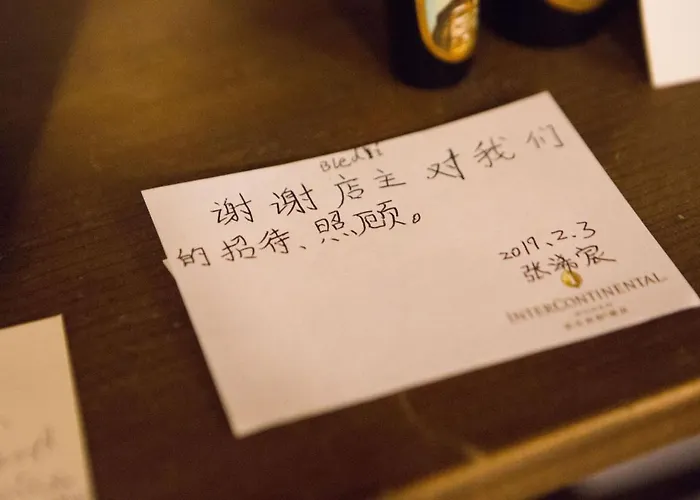 Bledi
谢谢店主对我们
的招待、照顾。
2019.2.3
INTERCONTINENTAL